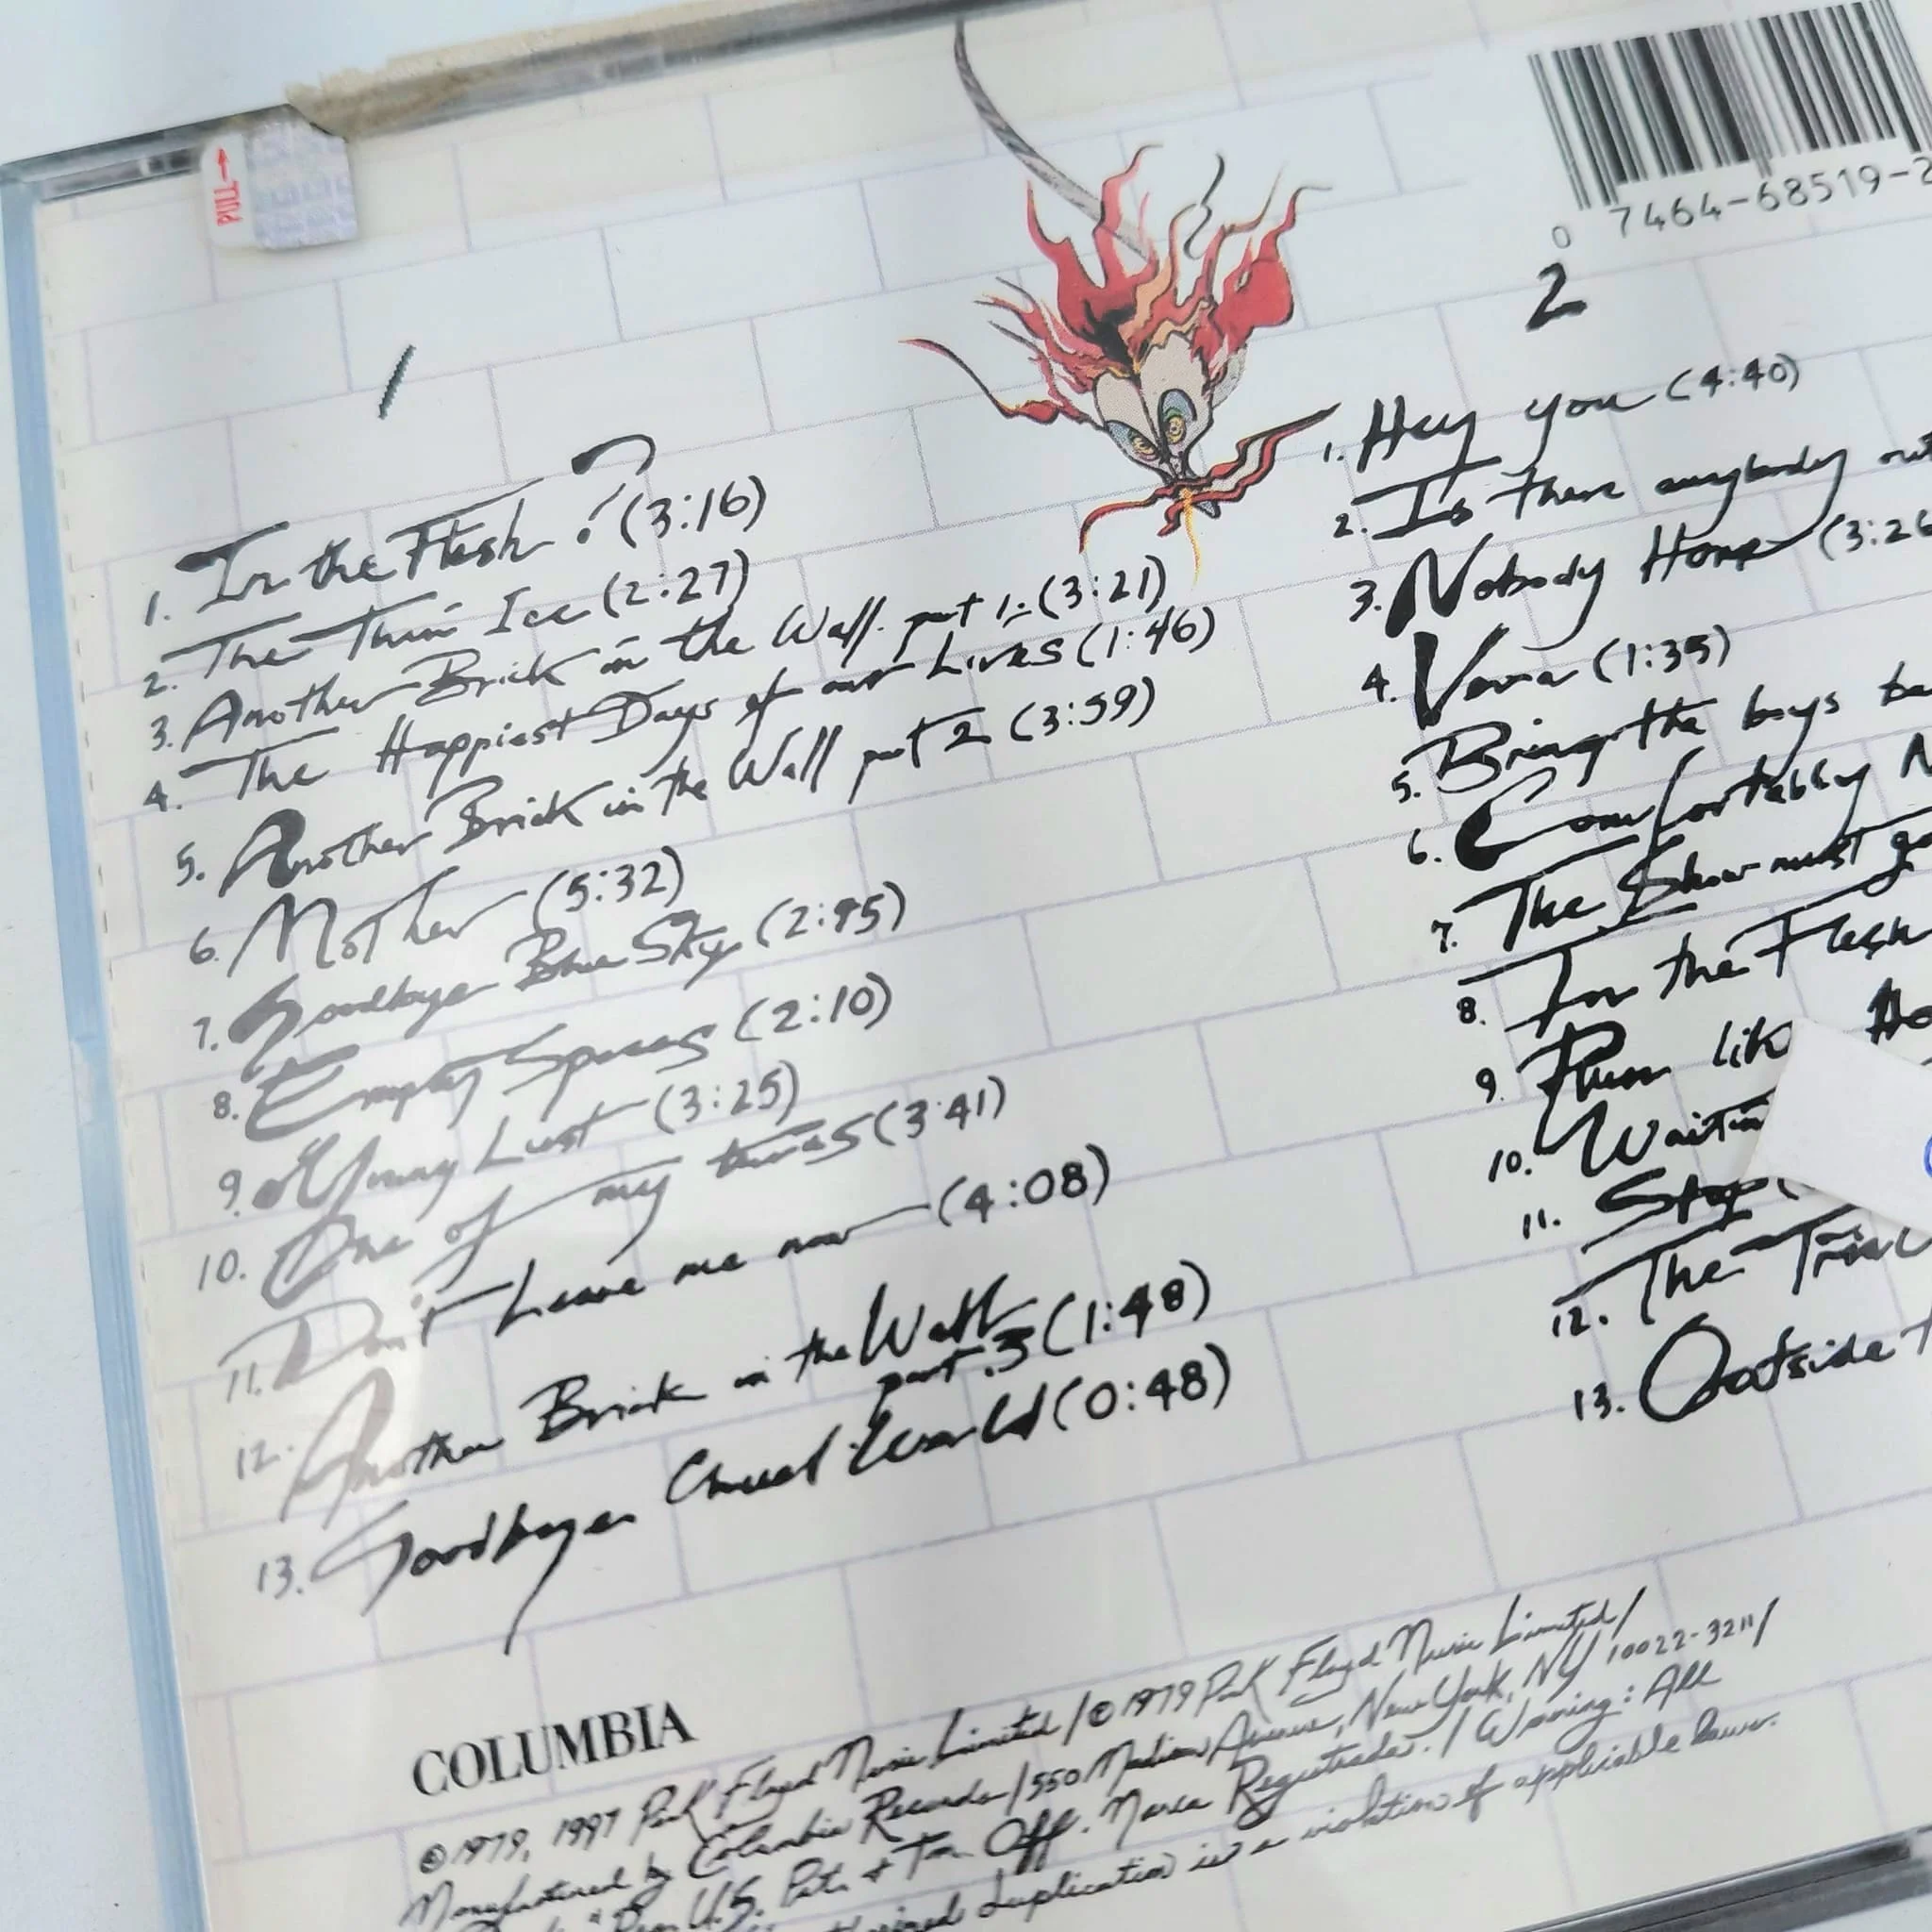 PULL→
0 7464-68519-2
1
1. In the Flesh? (3:16)
2. The Thin Ice (2:27)
3. Another Brick in the Wall part 1 (3:21)
4. The Happiest Days of our Lives (1:46)
5. Another Brick in the Wall part 2 (3:59)
6. Mother (5:32)
7. Goodbye Blue Sky (2:45)
8. Empty Spaces (2:10)
9. Young Lust (3:25)
10. One of my turns (3:41)
11. Don't Leave me now (4:08)
12. Another Brick in the Wall
part 3 (1:48)
13. Goodbye Cruel World (0:48)
2
1. Hey you (4:40)
2. Is there anybody out
3. Nobody Home (3:26
4. Vera (1:35)
5. Bring the boys ba
6. Comfortably N
7. The Show must go
8. In the Flesh
9. Run like
10. Waitin
11. Stop
12. The Trial
13. Outside t
COLUMBIA
© 1979, 1997 Pink Floyd Music Limited / ℗ 1979 Pink Floyd Music Limited /
Manufactured by Columbia Records / 550 Madison Avenue, New York, NY 10022-3211 /
U.S. Pat. & Tm. Off. Marca Registrada. / Warning: All
duplication is a violation of applicable laws.